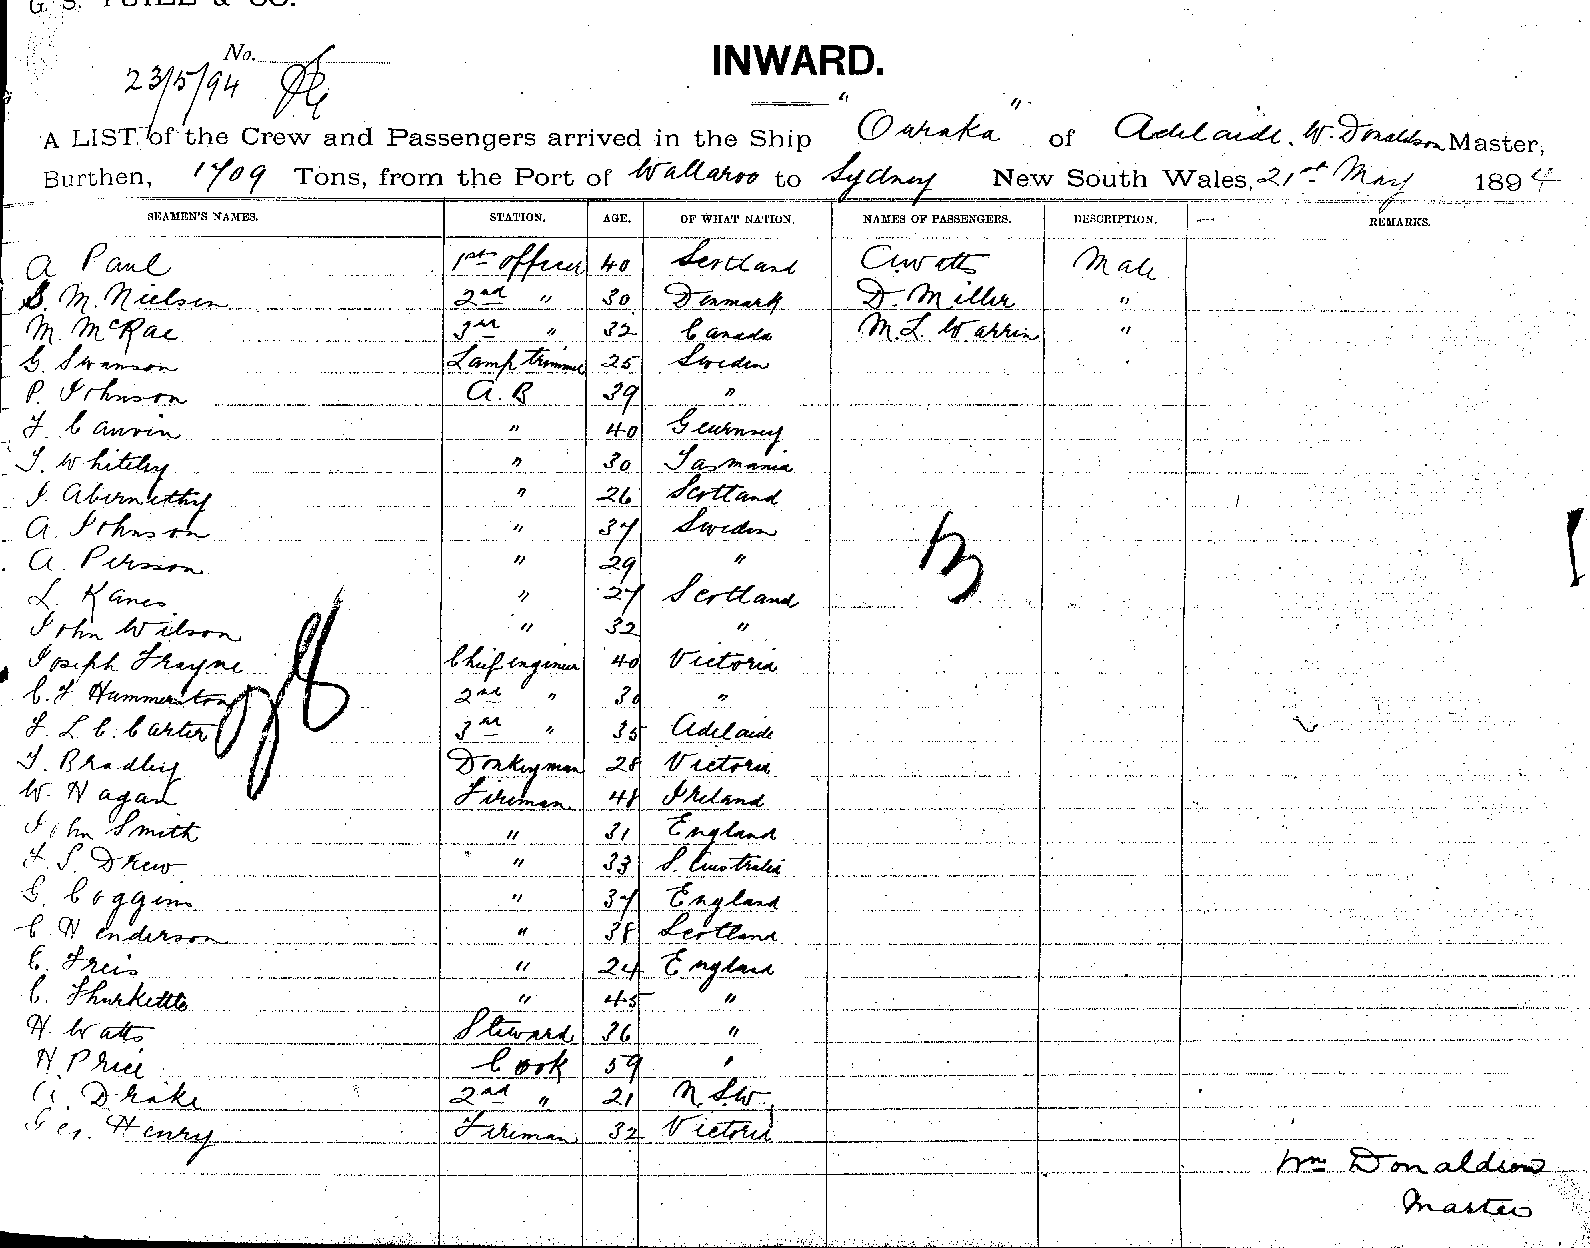 G. S. YUILL & CO.
No.
23/5/94
INWARD.
A LIST of the Crew and Passengers arrived in the Ship "Ouraka" of Adelaide, W. Donaldson Master,
Burthen, 1709 Tons, from the Port of Wallaroo to Sydney New South Wales, 21st May 1894
SEAMEN'S NAMES. STATION. AGE. OF WHAT NATION. NAMES OF PASSENGERS. DESCRIPTION. REMARKS.
A Paul 1st officer 40 Scotland A Watts Male
S. M. Nielsen 2nd " 30 Denmark D. Miller "
M. McRae 3rd " 32 Canada M L Warrin "
G. Swanson Lamp trimmer 25 Sweden
P. Johnson A. B 39 "
F Cauvin " 40 Geurnsey
T. Whiteley " 30 Tasmania
J. Abernethy " 26 Scotland
A. Johnson " 37 Sweden
A. Persson " 29 "
L. Kanes " 27 Scotland
John Wilson " 32 "
Joseph Frayne Chief engineer 40 Victoria
C. F Hammerston 2nd " 30 "
F. L. C. Carter 3rd " 35 Adelaide
T. Bradley Donkeyman 28 Victoria
W. Hagan Fireman 48 Ireland
John Smith " 31 England
F. S. Drew " 33 S. Australia
G. Coggins " 37 England
C Henderson " 38 Scotland
C. Freis " 24 England
C. Thurkettle " 45 "
H. Watts Steward 36 "
H. Price Cook 59 "
A. Drake 2nd " 21 N.S.W.
Geo. Henry Fireman 32 Victoria
13
Wm Donaldson
Master